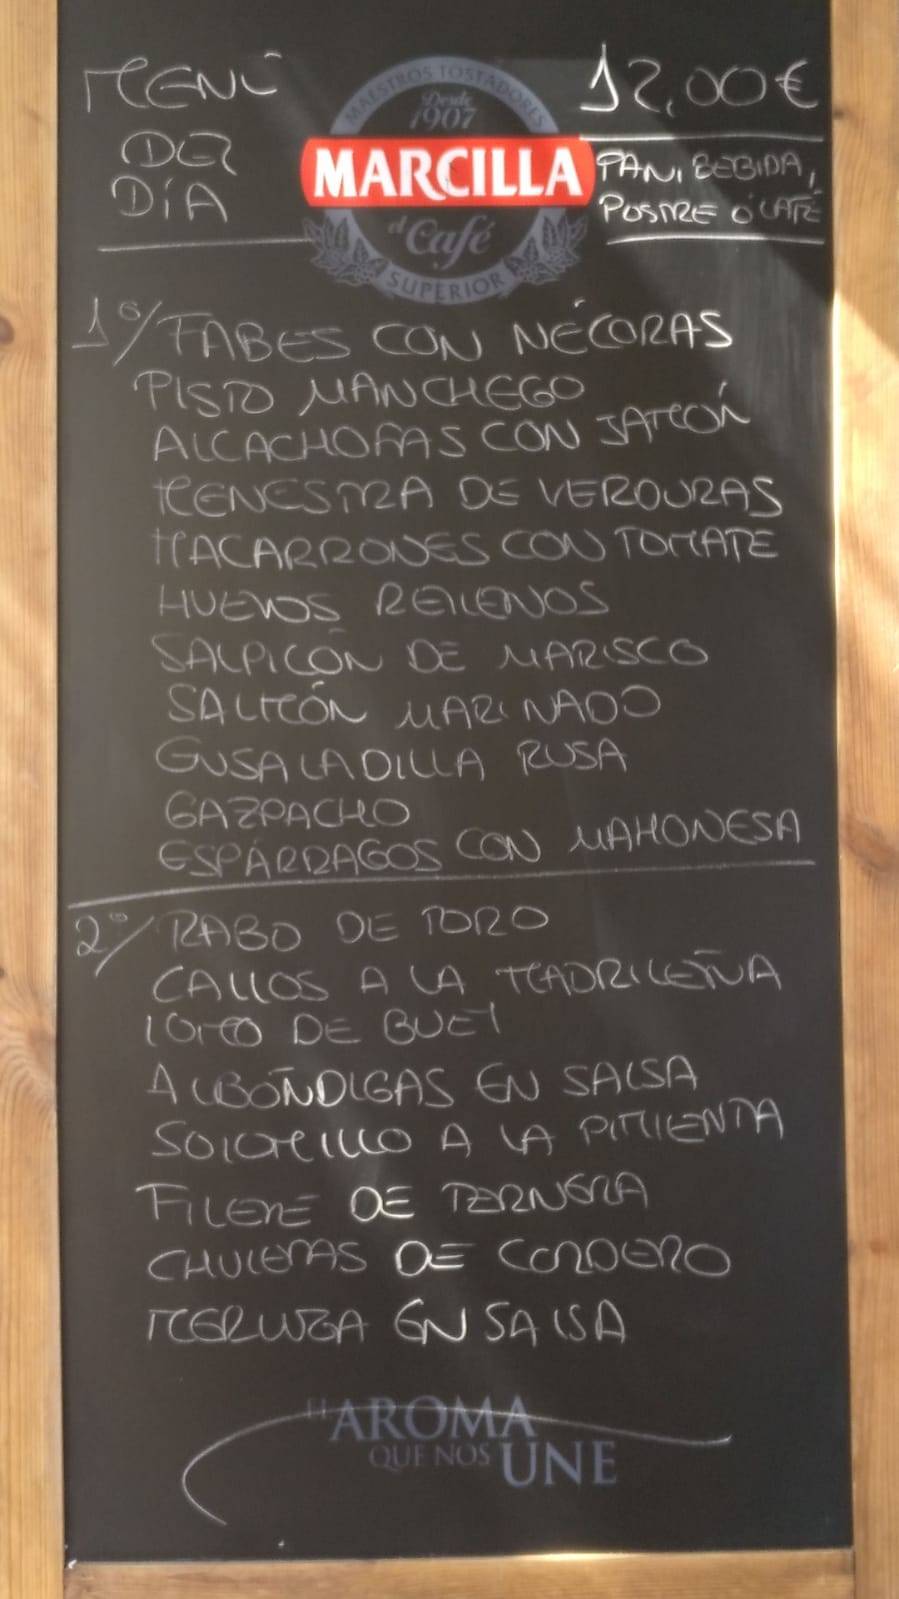 MENÚ
DEL
DÍA
MAESTROS TOSTADORES
Desde
1907
MARCILLA
el Café
SUPERIOR
12,00€
PAN, BEBIDA,
POSTRE O CAFÉ
1º/ FABES CON NÉCORAS
PISTO MANCHEGO
ALCACHOFAS CON JAMÓN
MENESTRA DE VERDURAS
MACARRONES CON TOMATE
HUEVOS RELLENOS
SALPICÓN DE MARISCO
SALMÓN MARINADO
ENSALADILLA RUSA
GAZPACHO
ESPÁRRAGOS CON MAHONESA
2º/ RABO DE TORO
CALLOS A LA MADRILEÑA
LOMO DE BUEY
ALBÓNDIGAS EN SALSA
SOLOMILLO A LA PIMIENTA
FILETE DE TERNERA
CHULETAS DE CORDERO
MERLUZA EN SALSA
EL AROMA
QUE NOS UNE